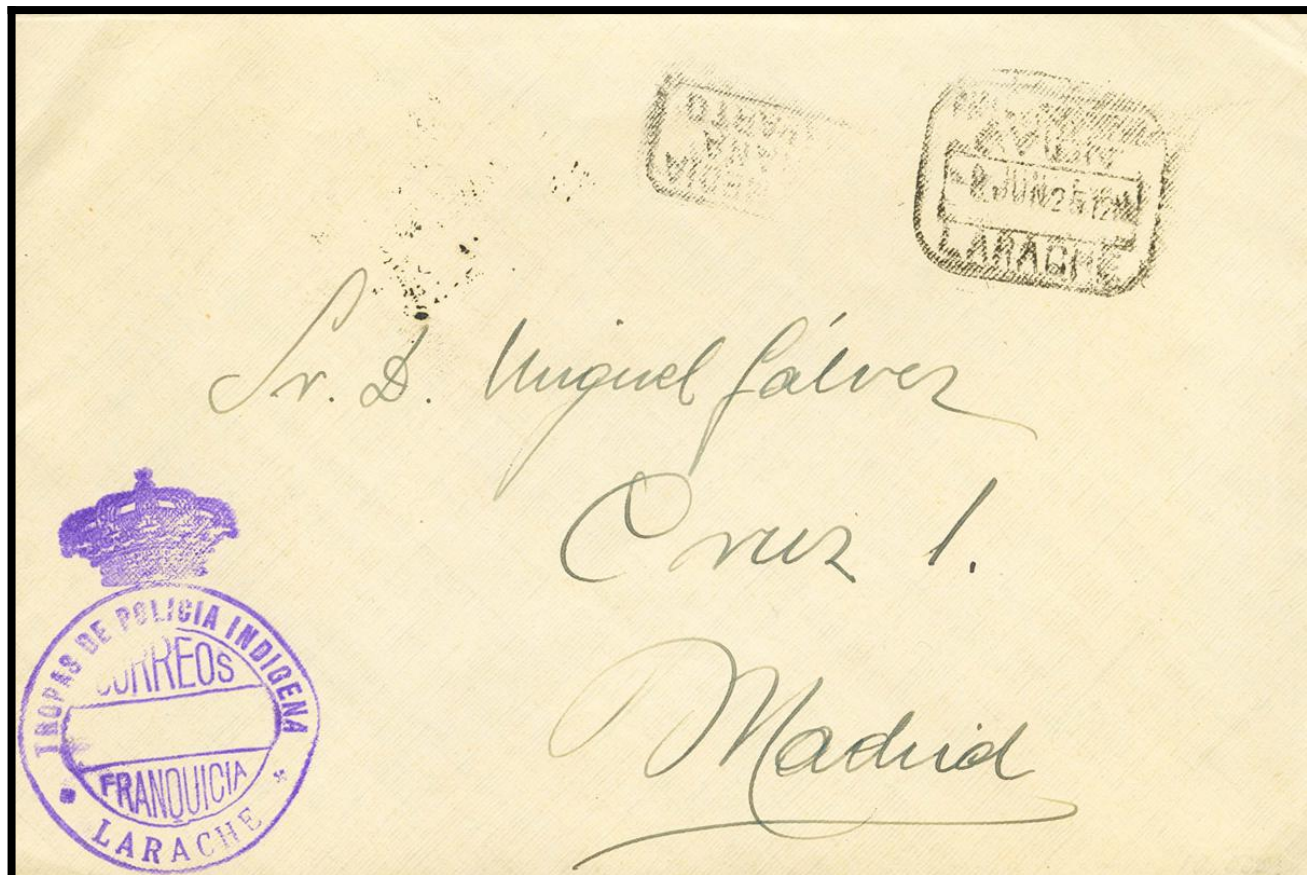 AVION
JUN 25
LARACHE
Sr. D. Miguel Gálvez
Cruz 1.
Madrid
TROPAS DE POLICIA INDIGENA
CORREOS
FRANQUICIA
LARACHE